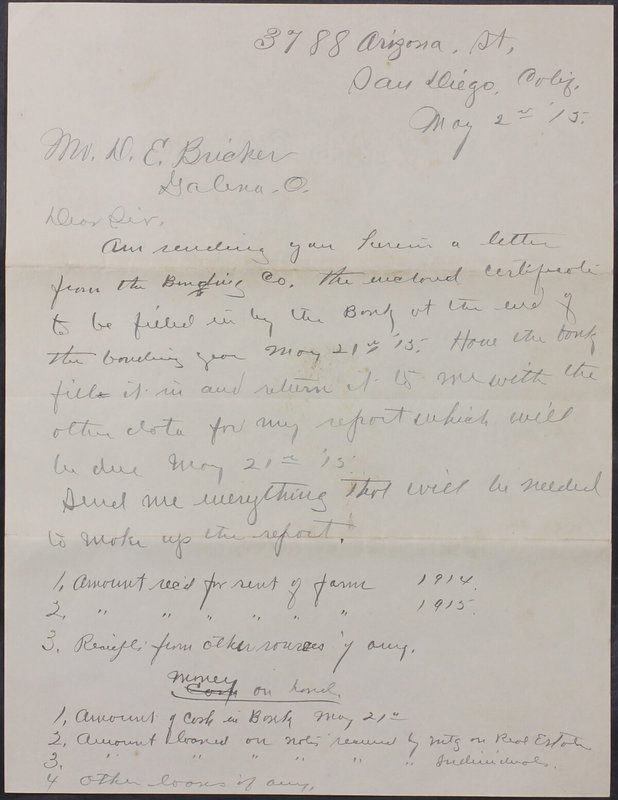 3788 Arizona. St,
San Diego. Calif.
May 2nd '15.
Mr. D. E. Bricker
Galena. O.
Dear Sir,
Am sending you herein a letter
from the Bonding Co. The enclosed certificate
to be filled in by the Bank at the end of
the bonding year May 21st '15. Have the bank
fill it in and return it to me with the
other data for my report which will
be due May 21st '15
Send me everything that will be needed
to make up the report.
1, Amount rec'd for rent of farm 1914.
2, " " " " " " 1915.
3, Receipts from other sources if any.
Money
Cash on hand.
1, Amount of cash in Bank May 21st
2, Amount loaned on notes secured by mtg on Real Estate
3, " " " " " Individuals.
4 Other loans if any.